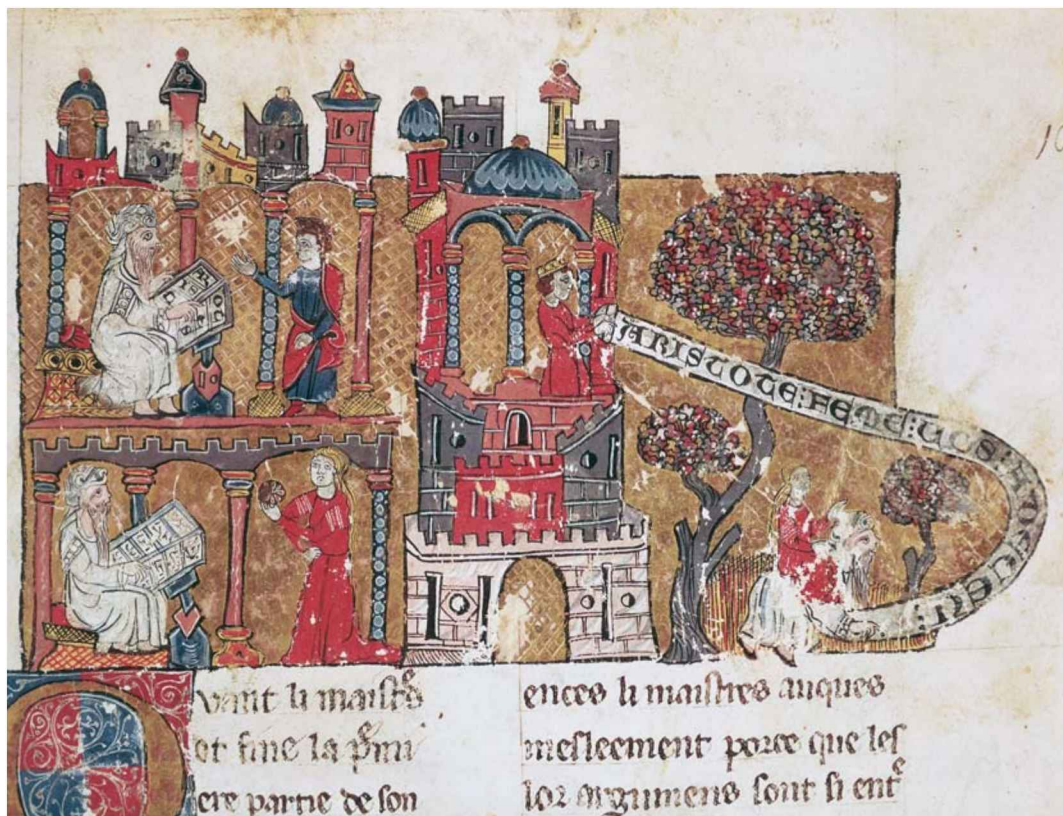 ARISTOTE : FEME :
vant li maistres
ot fine la pmi
ere partie de son
ences li maistres auques
mesleement porce que les
lor argumens sont si ent